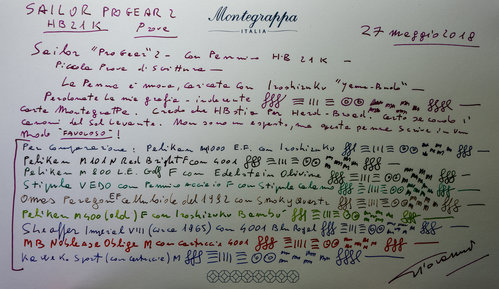 SAILOR PROGEAR 2
HB 21K Prove
Montegrappa
ITALIA
27 maggio 2018
Sailor "ProGear" 2 - con Pennino H-B 21K -
Piccole Prove di scrittura
La Penna è nuova, caricata con Iroshizuku "Yama-Budo"
Perdonate la mia grafia - indecente
Carta Montegrappa. Credo che HB stia Per Hard-Broad. Certo secondo i
canoni del Sol Levante. Non sono un esperto, ma questa penna scrive in un
modo "FAVOLOSO"!
Per comparazione: Pelikan M1000 E.F. con Iroshizuku
Pelikan M101N Red Bright F con 4001
Pelikan M800 L.E. F con Edelstein Olivine
Stipula VEDO con Pennino acciaio F con Stipula
Omas Paragon EF celluloide del 1992 con Smoky Quartz
Pelikan M400 (old) F con Iroshizuku Bambù
Sheaffer Imperial VIII (circa 1965) con 4001 Blu Royal
MB Noblesse Oblige M con cartuccia 4001
Kaweko Sport (con cartuccia) M
Giovanni